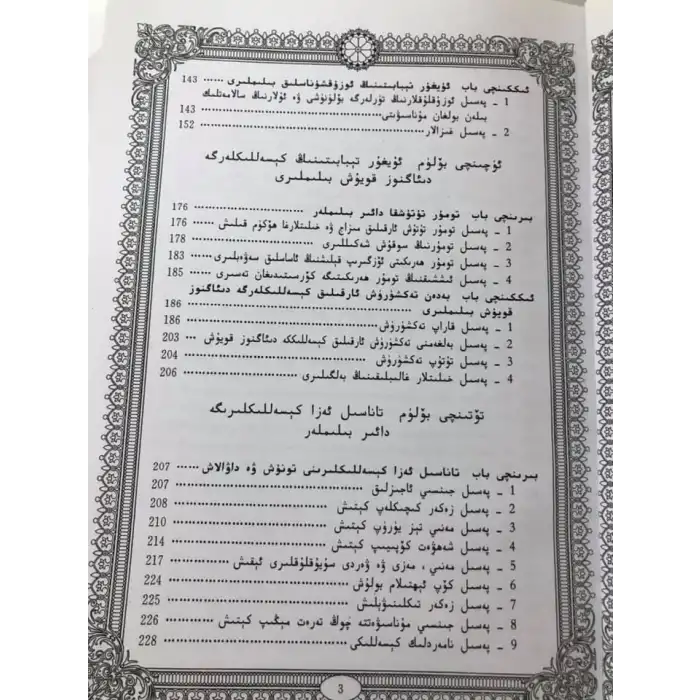 ئىككىنچى باب ئۇيغۇر تېبابىتىنىڭ ئوزۇقشۇناسلىق بىلىملىرى ······ 143
1 ـ پەسىل ئوزۇقلۇقلارنىڭ تۈرلەرگە بۆلۈنۈشى ۋە ئۇلارنىڭ سالامەتلىك
بىلەن بولغان مۇناسىۋىتى ······ 143
2 ـ پەسىل غىزالار ······ 152
ئۈچىنچى بۆلۈم ئۇيغۇر تېبابىتىنىڭ كېسەللىكلەرگە
دىئاگنوز قويۇش بىلىملىرى
بىرىنچى باب تومۇر تۇتۇشقا دائىر بىلىملەر ······ 176
1 ـ پەسىل تومۇر تۇتۇش ئارقىلىق مىزاج ۋە خىلىتلارغا ھۆكۈم قىلىش ······ 176
2 ـ پەسىل تومۇرنىڭ سوقۇش شەكىللىرى ······ 178
3 ـ پەسىل تومۇر ھەرىكىتى ئۆزگىرىپ قېلىشنىڭ ئاساسلىق سەۋەبلىرى ······ 183
4 ـ پەسىل ئىششىقنىڭ تومۇر ھەرىكىتىگە كۆرسىتىدىغان تەسىرى ······ 185
ئىككىنچى باب بەدەن تەكشۈرۈش ئارقىلىق كېسەللىكلەرگە دىئاگنوز
قويۇش بىلىملىرى ······ 186
1 ـ پەسىل قاراپ تەكشۈرۈش ······ 186
2 ـ پەسىل بەلغەمنى تەكشۈرۈش ئارقىلىق كېسەللىككە دىئاگنوز قويۇش ··· 203
3 ـ پەسىل تۇتۇپ تەكشۈرۈش ······ 204
4 ـ پەسىل خىلىتلار غالىبلىقىنىڭ بەلگىلىرى ······ 206
تۆتىنچى بۆلۈم تاناسىل ئەزا كېسەللىكلىرىگە
دائىر بىلىملەر
بىرىنچى باب تاناسىل ئەزا كېسەللىكلىرىنى تونۇش ۋە داۋالاش ······ 207
1 ـ پەسىل جىنسىي ئاجىزلىق ······ 207
2 ـ پەسىل زەكەر كىچىكلەپ كېتىش ······ 208
3 ـ پەسىل مەنىي تېز يۈرۈپ كېتىش ······ 210
4 ـ پەسىل شەھۋەت كۆپىيىپ كېتىش ······ 214
5 ـ پەسىل مەنىي، مەزى ۋە ۋەردى سۇيۇقلۇقلىرى ئېقىش ······ 217
6 ـ پەسىل كۆپ ئېھتىلام بولۇش ······ 224
7 ـ پەسىل زەكەر تىكلىنىۋېلىش ······ 225
8 ـ پەسىل جىنسىي مۇناسىۋەتتە چوڭ تەرەت مېڭىپ كېتىش ······ 226
9 ـ پەسىل نامەردلىك كېسەللىكى ······ 228
3